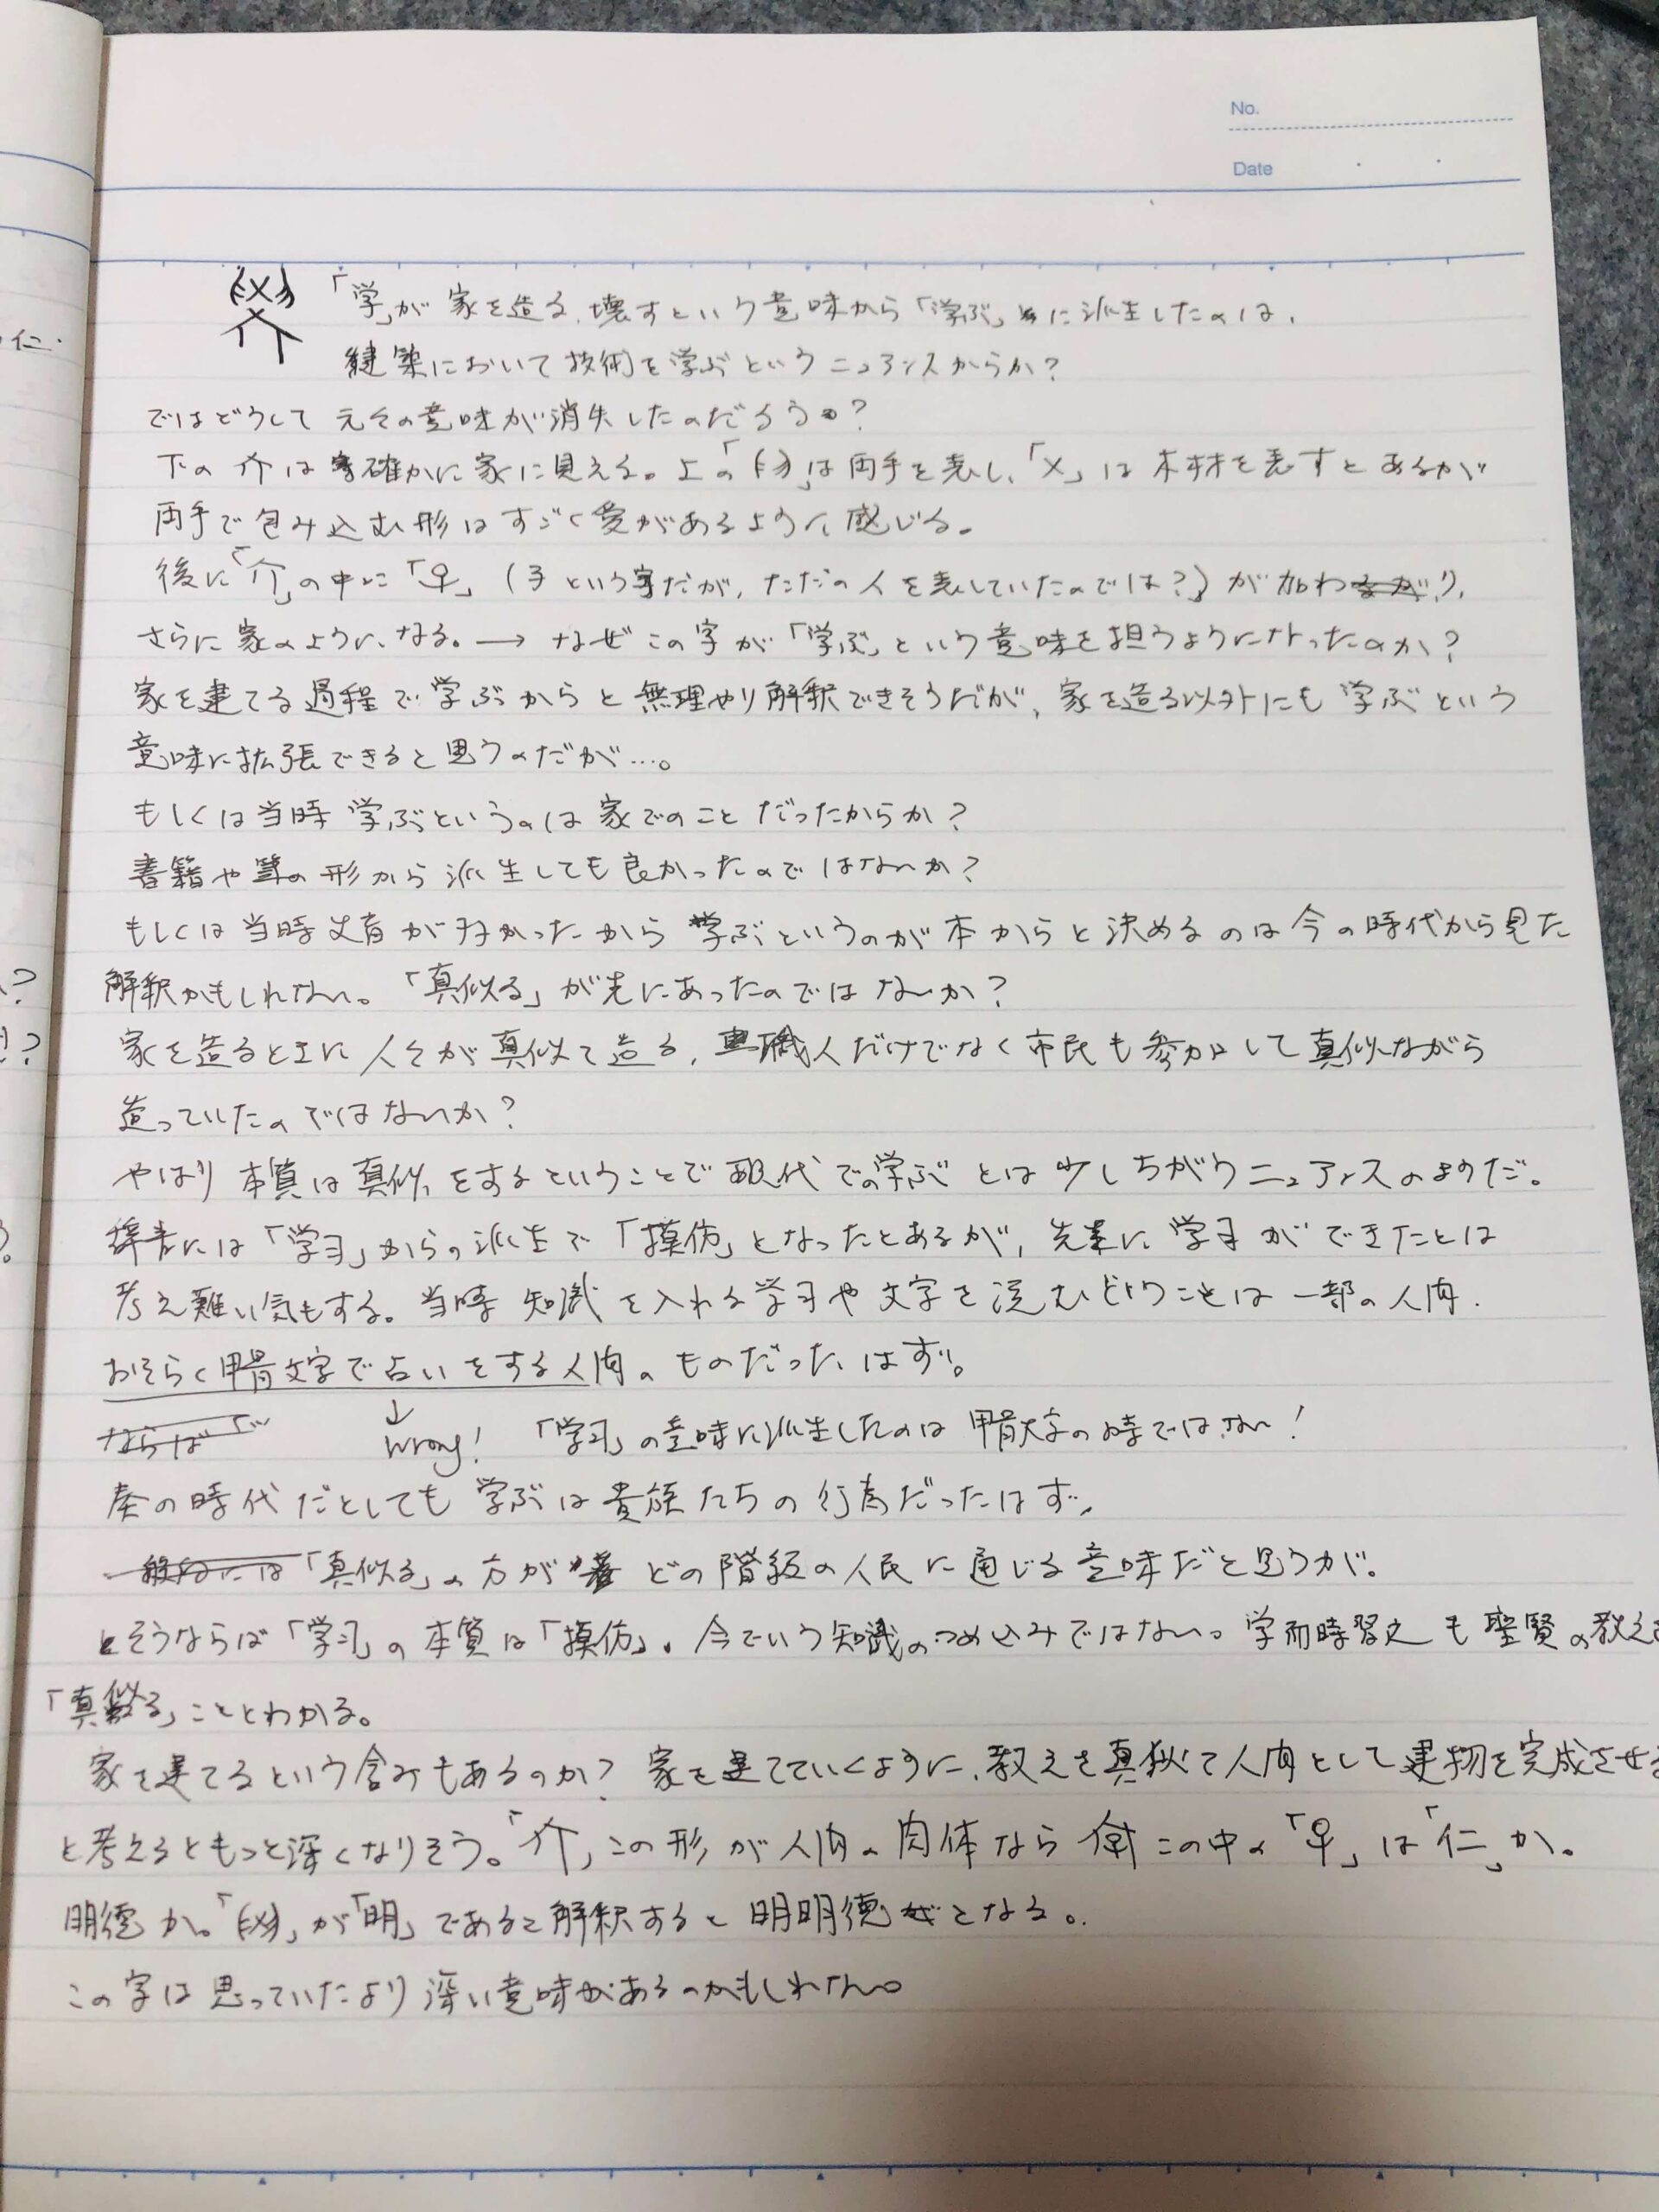 No.
Date
仁.
「学」が家を造る、壊すという意味から「学ぶ」に派生したのは、
建築において技術を学ぶというニュアンスからか?
ではどうして元々の意味が消失したのだろう?
下の介は確かに家に見える。上の「」は両手を表し、「乂」は木材を表すとあるが
両手で包み込む形はすごく愛があるように感じる。
後に「介」の中に「」(子という字だが、ただの人を表していたのでは?)が加わり、
さらに家のようになる。→ なぜこの字が「学ぶ」という意味を担うようになったのか?
家を建てる過程で学ぶからと無理やり解釈できそうだが、家を造る以外にも学ぶという
意味に拡張できると思うのだが…。
もしくは当時学ぶというのは家でのことだったからか?
書籍や筆の形から派生しても良かったのではないか?
もしくは当時文育がなかったから学ぶというのが本からと決めるのは今の時代から見た
解釈かもしれない。「真似る」が先にあったのではないか?
家を造るときに人々が真似て造る、職人だけでなく市民も参加して真似ながら
造っていたのではないか?
やはり本質は真似をするということで現代での学ぶとは少しちがうニュアンスのようだ。
辞書には「学习」からの派生で「摸仿」となったとあるが、先に学习ができたとは
考え難い気もする。当時知識を入れる学习や文字を読むということは一部の人間.
おそらく甲骨文字で占いをする人間のものだったはず。
ならば
↓
wrong! 「学习」の意味に派生したのは甲骨文字の時ではない!
秦の時代だとしても学ぶは貴族たちの行為だったはず、
「真似る」の方がどの階級の人民に通じる意味だと思うが。
そうならば「学习」の本質は「摸仿」。今でいう知識のつめ込みではない。学而時習之も聖賢の教えを
「真似る」こととわかる。
家を建てるという含みもあるのか? 家を建てていくように、教えを真似て人間として建物を完成させる
と考えるともっと深くなりそう。「介」この形が人間の肉体ならこの中の「」は「仁」か。
明徳か。「」が「明」であると解釈すると明明徳となる。
この字は思っていたより深い意味があるのかもしれない。